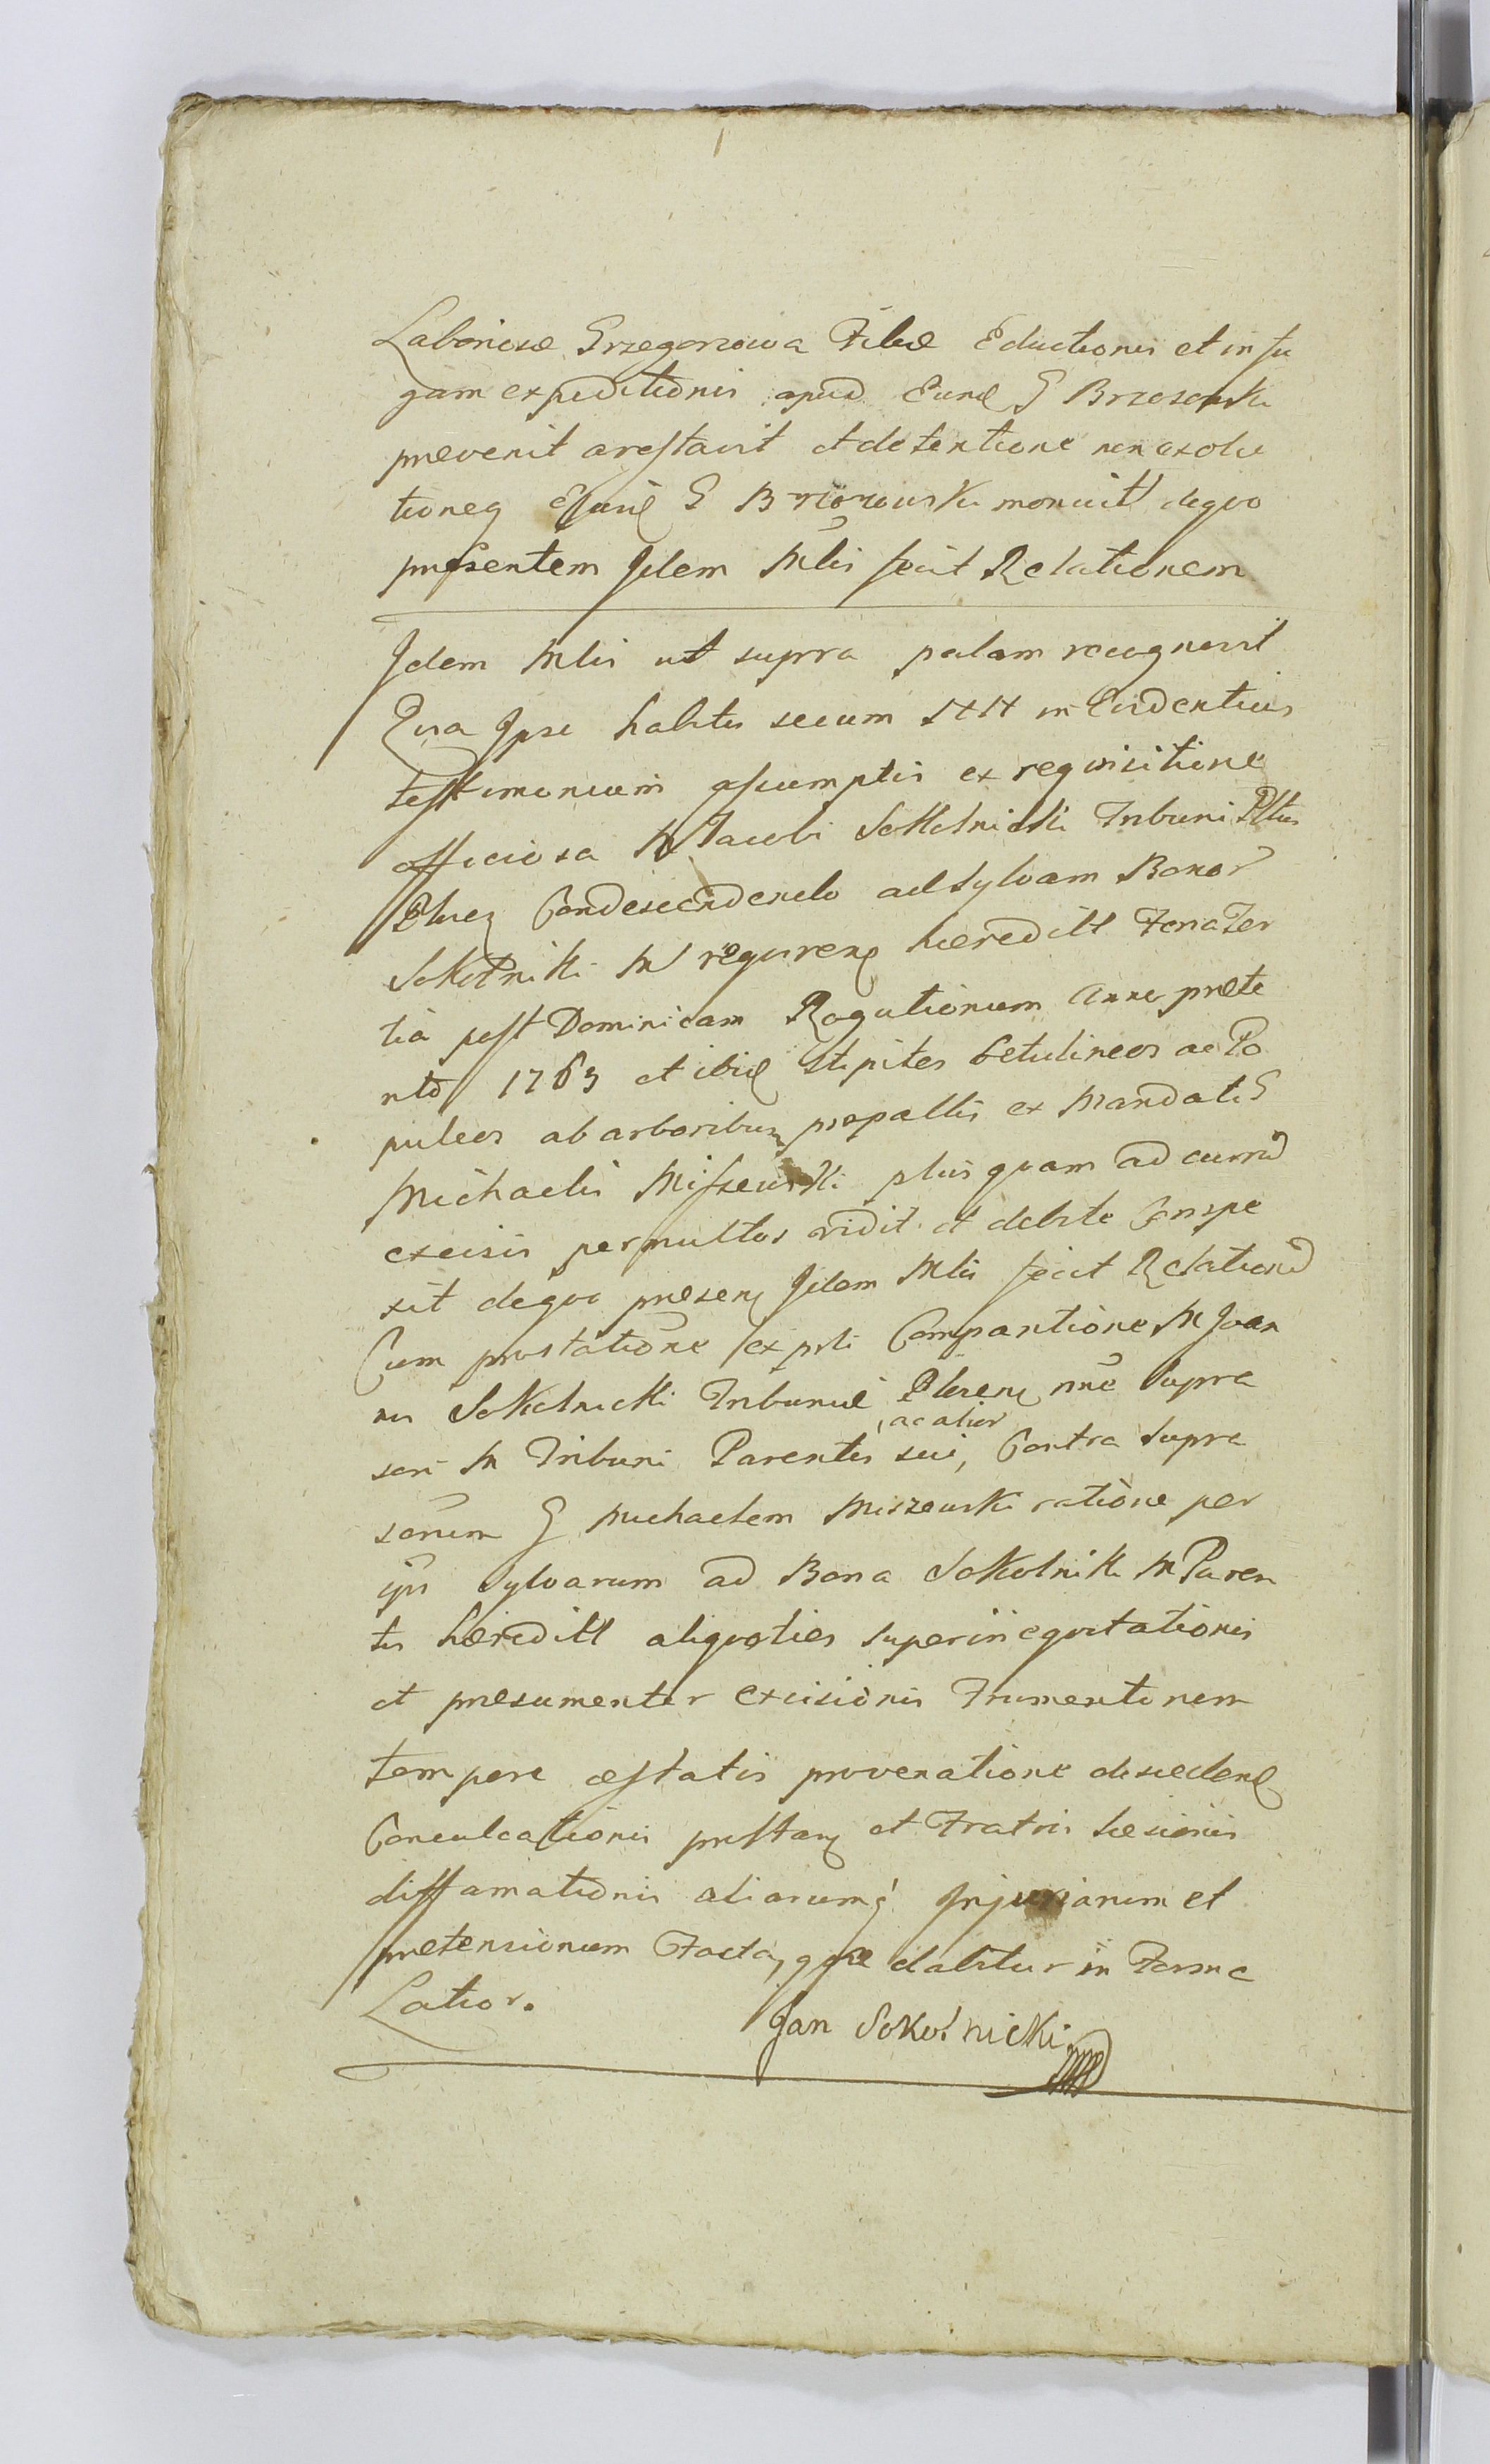 Laboriosæ Grzegorzowa Filiæ Eductionis et in fu
gam expeditionis apud Eund G Brzozowski
prævenit arestavit et detentione non exolu
tioneq Ejusd G Brzozowski monuit dequo
præsentem Idem Mlis fecit Relationem
Idem Mlis ut supra palam recognovit
Quia Ipse habitis secum NN in Evidentius
testimonium assumptis ex requisitione
officiosa M Jacobi Sokolnicki Tribuni Pltus
Condescendendo ad Sylvam Bonor
Sokolniki M requirens hæreditt Feria Ter
tia post Dominicam Rogationum Anno præte
nto 1763 et ibid stipites betulineos ac Po
puleos ab arboribus propallis ex Mandato G
Michaelis Miszewski plus quam ad currũ
excisis permultos vidit et debite Conspe
xit dequo præsens Idem Mlis fecit Relationẽ
Cum prostatione ex prti Compartione M Joan
nis Sokolnicki Tribunid nnc supra
scri M Tribuni Parentis sui, ac alior Contra supra
scrium G Michaelem Miszewski ratione per
ips Sylvarum ad Bona Sokolniki M Paren
tis hæreditt aliquoties superinequitationis
et præsumenter Excisionis Frumentorum
tempore æstatis provenatione discedend
Conculcationis præstans et Fratris Læsionis
diffamationis aliarumq Injuriarum et
prætensionum Facta, quæ dabitur in Forma
Latior.
Jan Sokolnicki